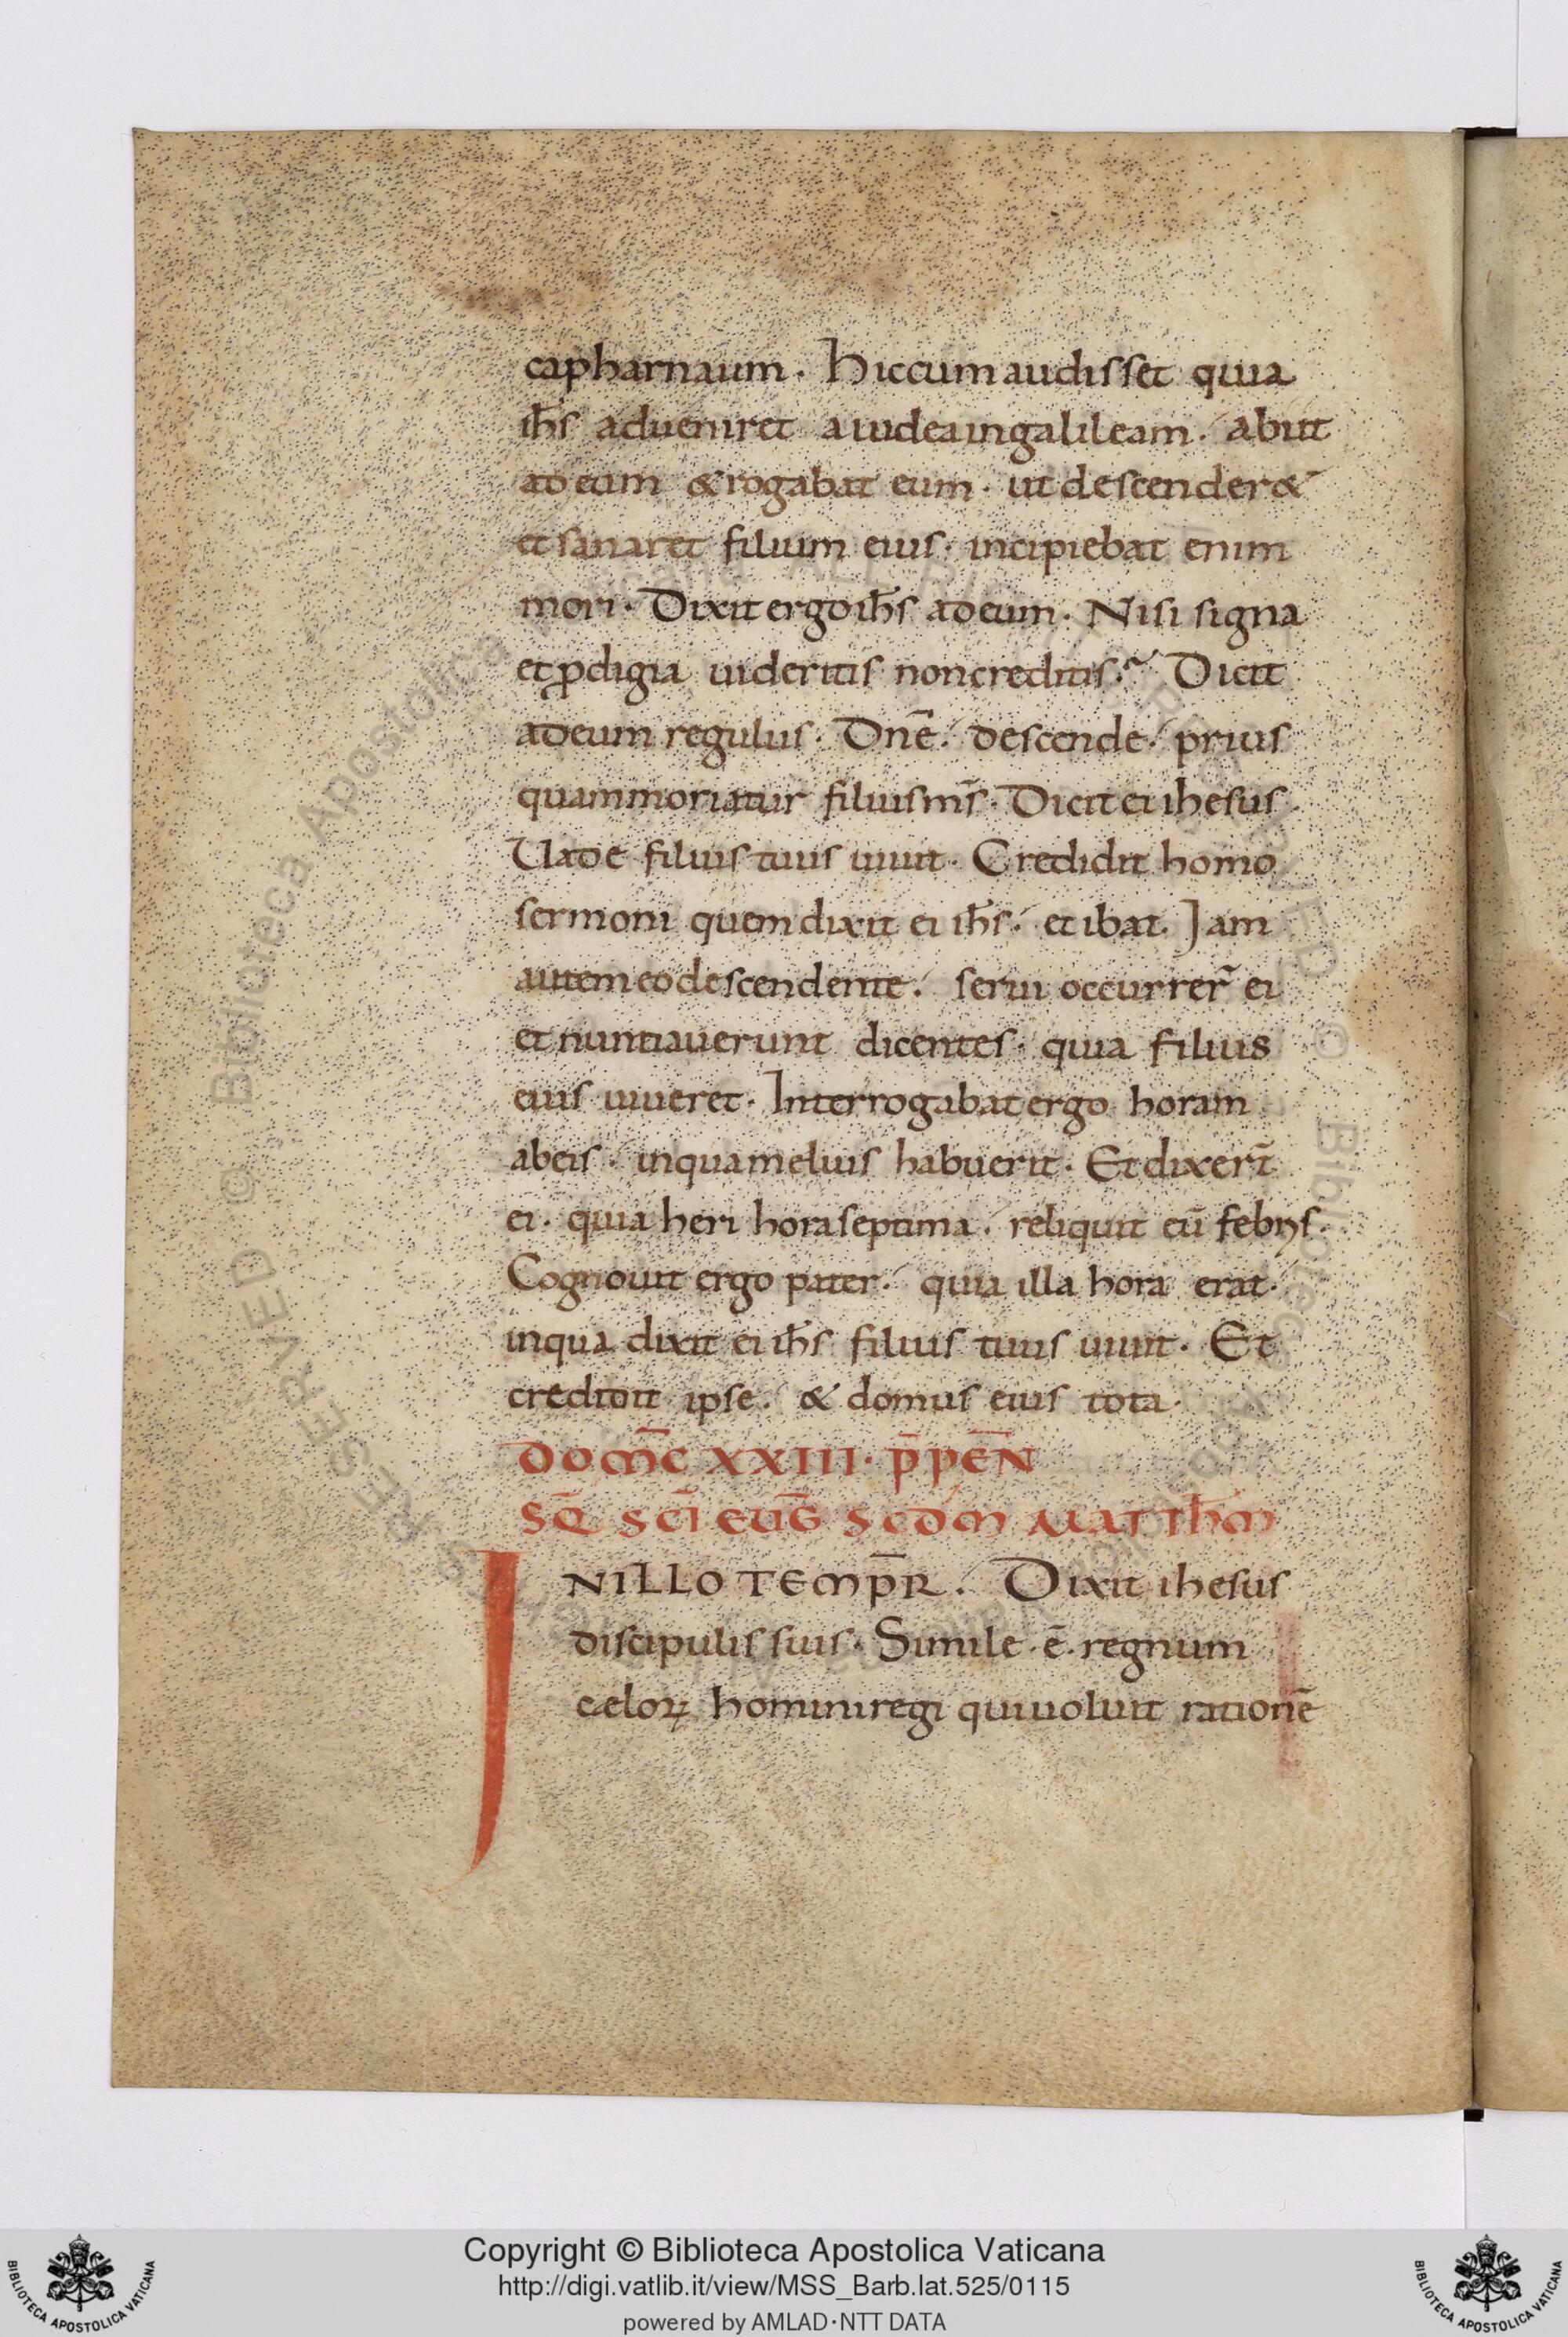 capharnaum. Hic cum audisset quia
ih̅s adueniret a iudea in galileam. abiit
ad eum & rogabat eum. ut descender&
et sanaret filium eius. incipiebat enim
mori. Dixit ergo ih̅s ad eum. Nisi signa
et ꝓdigia uideritis non creditis. Dicit
ad eum regulus. Dn̅e. descende. prius
quam moriatur filius ms̅. Dicit ei ihesus
Uade filius tuus uiuit. Credidit homo
sermoni quem dixit ei ih̅s. et ibat. Jam
autem eo descendente. serui occurrer̅ ei
et nuntiauerunt dicentes. quia filius
eius uiueret. Interrogabat ergo horam
ab eis. in qua melius habuerit. Et dixer̅t
ei. quia heri hora septima. reliquit eu̅ febris.
Cognouit ergo pater. quia illa hora erat.
in qua dixit ei ih̅s filius tuus uiuit. Et
credidit ipse. & domus eius tota.
DOM̅C XXIII. P̅ PEN̅
SQ̅ SCI̅ EUG̅ SCDM̅ MATTHM̅
IN ILLO TEMP̅R. Dixit ihesus
discipulis suis. Simile. e̅. regnum
cæloꝝ homini regi qui uoluit ratione̅
Copyright © Biblioteca Apostolica Vaticana
http://digi.vatlib.it/view/MSS_Barb.lat.525/0115
powered by AMLAD·NTT DATA
BIBLIOTECA APOSTOLICA VATICANA
BIBLIOTECA APOSTOLICA VATICANA